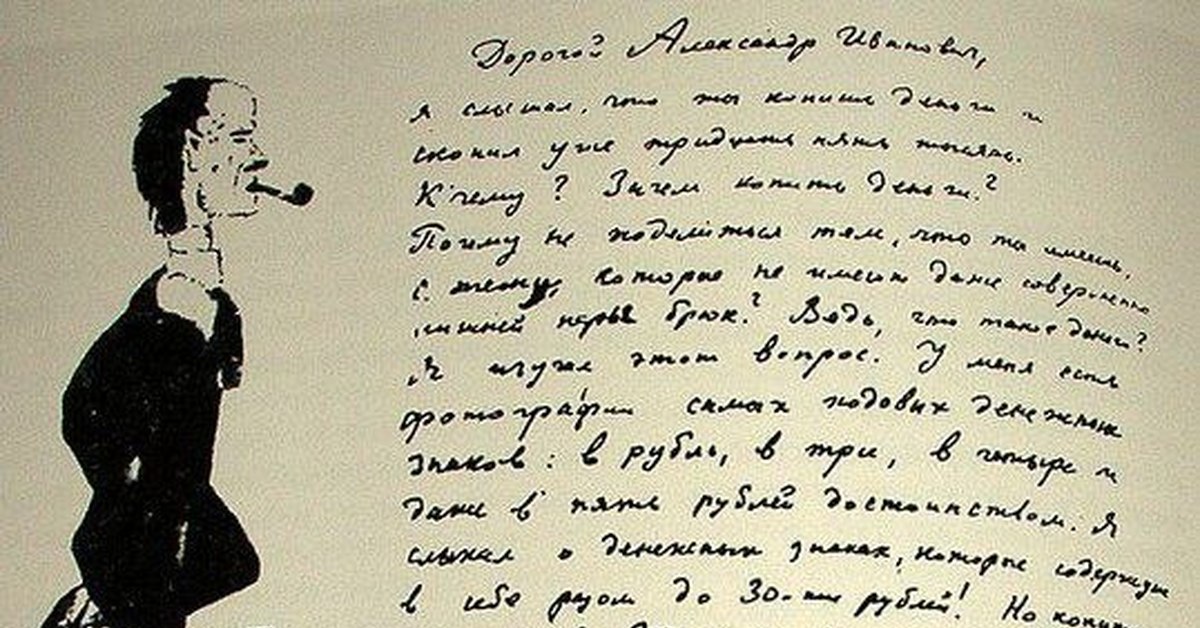 Дорогой Александр Иванович,
я слышал, что ты копишь деньги и
скопил уже тридцать пять тысяч.
К чему? Зачем копить деньги?
Почему не поделиться тем, что ты имеешь,
с теми, которые не имеют даже совершенно
лишней пары брюк? Ведь, что такое деньги?
Я изучал этот вопрос. У меня есть
фотографии самых ходовых денежных
знаков: в рубль, в три, в четыре и
даже в пять рублей достоинством. Я
слыхал о денежных знаках, которые содержат
в себе разом до 30-ти рублей! Но копить